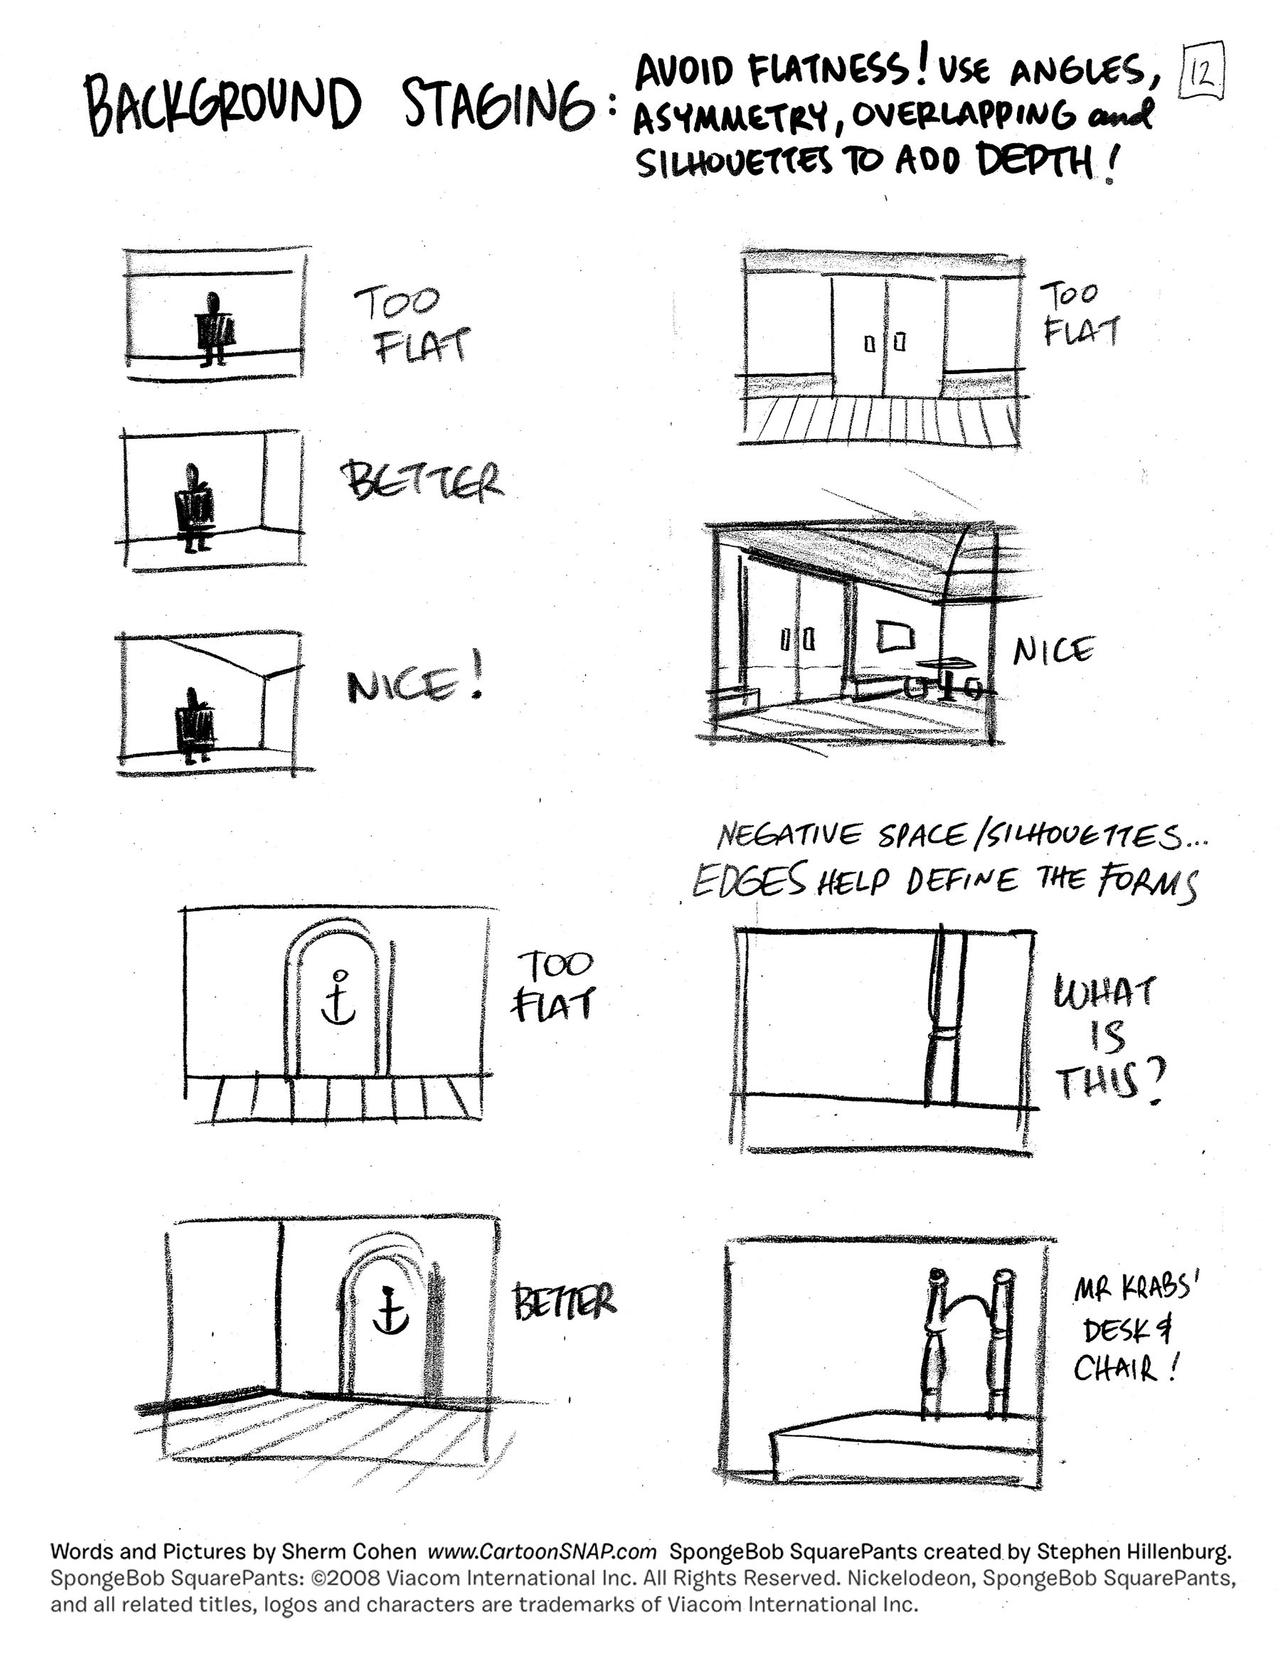 BACKGROUND STAGING:
AVOID FLATNESS! USE ANGLES,
ASYMMETRY, OVERLAPPING and
SILHOUETTES TO ADD DEPTH!
12
TOO
FLAT
BETTER
NICE!
TOO
FLAT
NICE
TOO
FLAT
BETTER
NEGATIVE SPACE/SILHOUETTES...
EDGES HELP DEFINE THE FORMS
WHAT
IS
THIS?
MR KRABS'
DESK &
CHAIR!
Words and Pictures by Sherm Cohen www.CartoonSNAP.com SpongeBob SquarePants created by Stephen Hillenburg.
SpongeBob SquarePants: ©2008 Viacom International Inc. All Rights Reserved. Nickelodeon, SpongeBob SquarePants,
and all related titles, logos and characters are trademarks of Viacom International Inc.